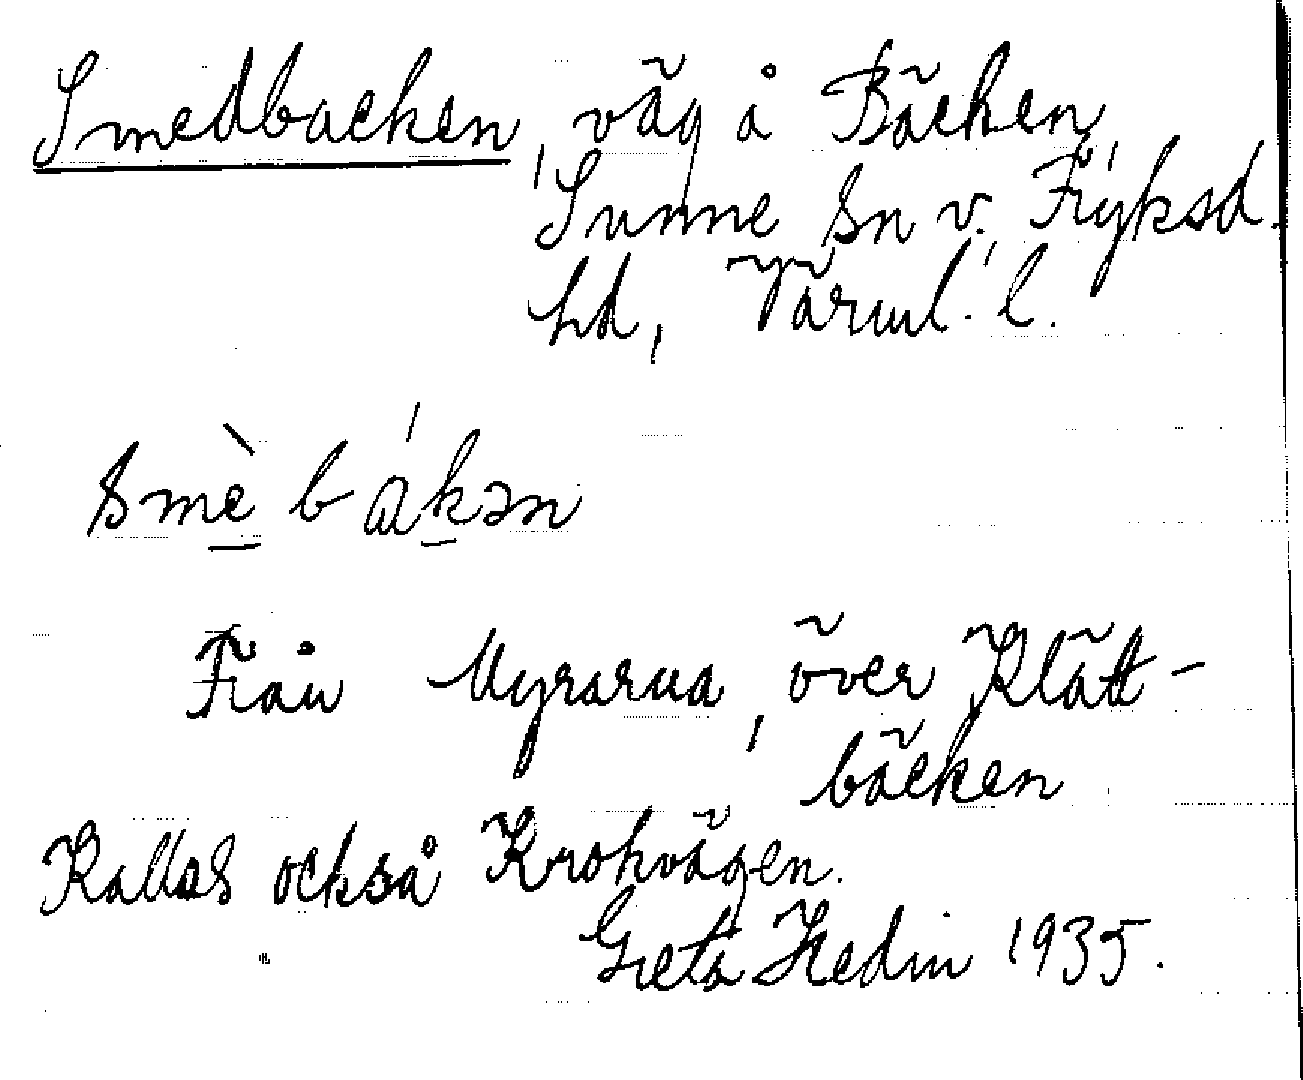 Smedbacken, väg å Bäcken,
Sunne sn v. Fryksd.
hd, Värml. l.
smè bákən
Från Myrarna, över Klätt-
bäcken
Kallas också Krokvägen.
Greta Hedin 1935.